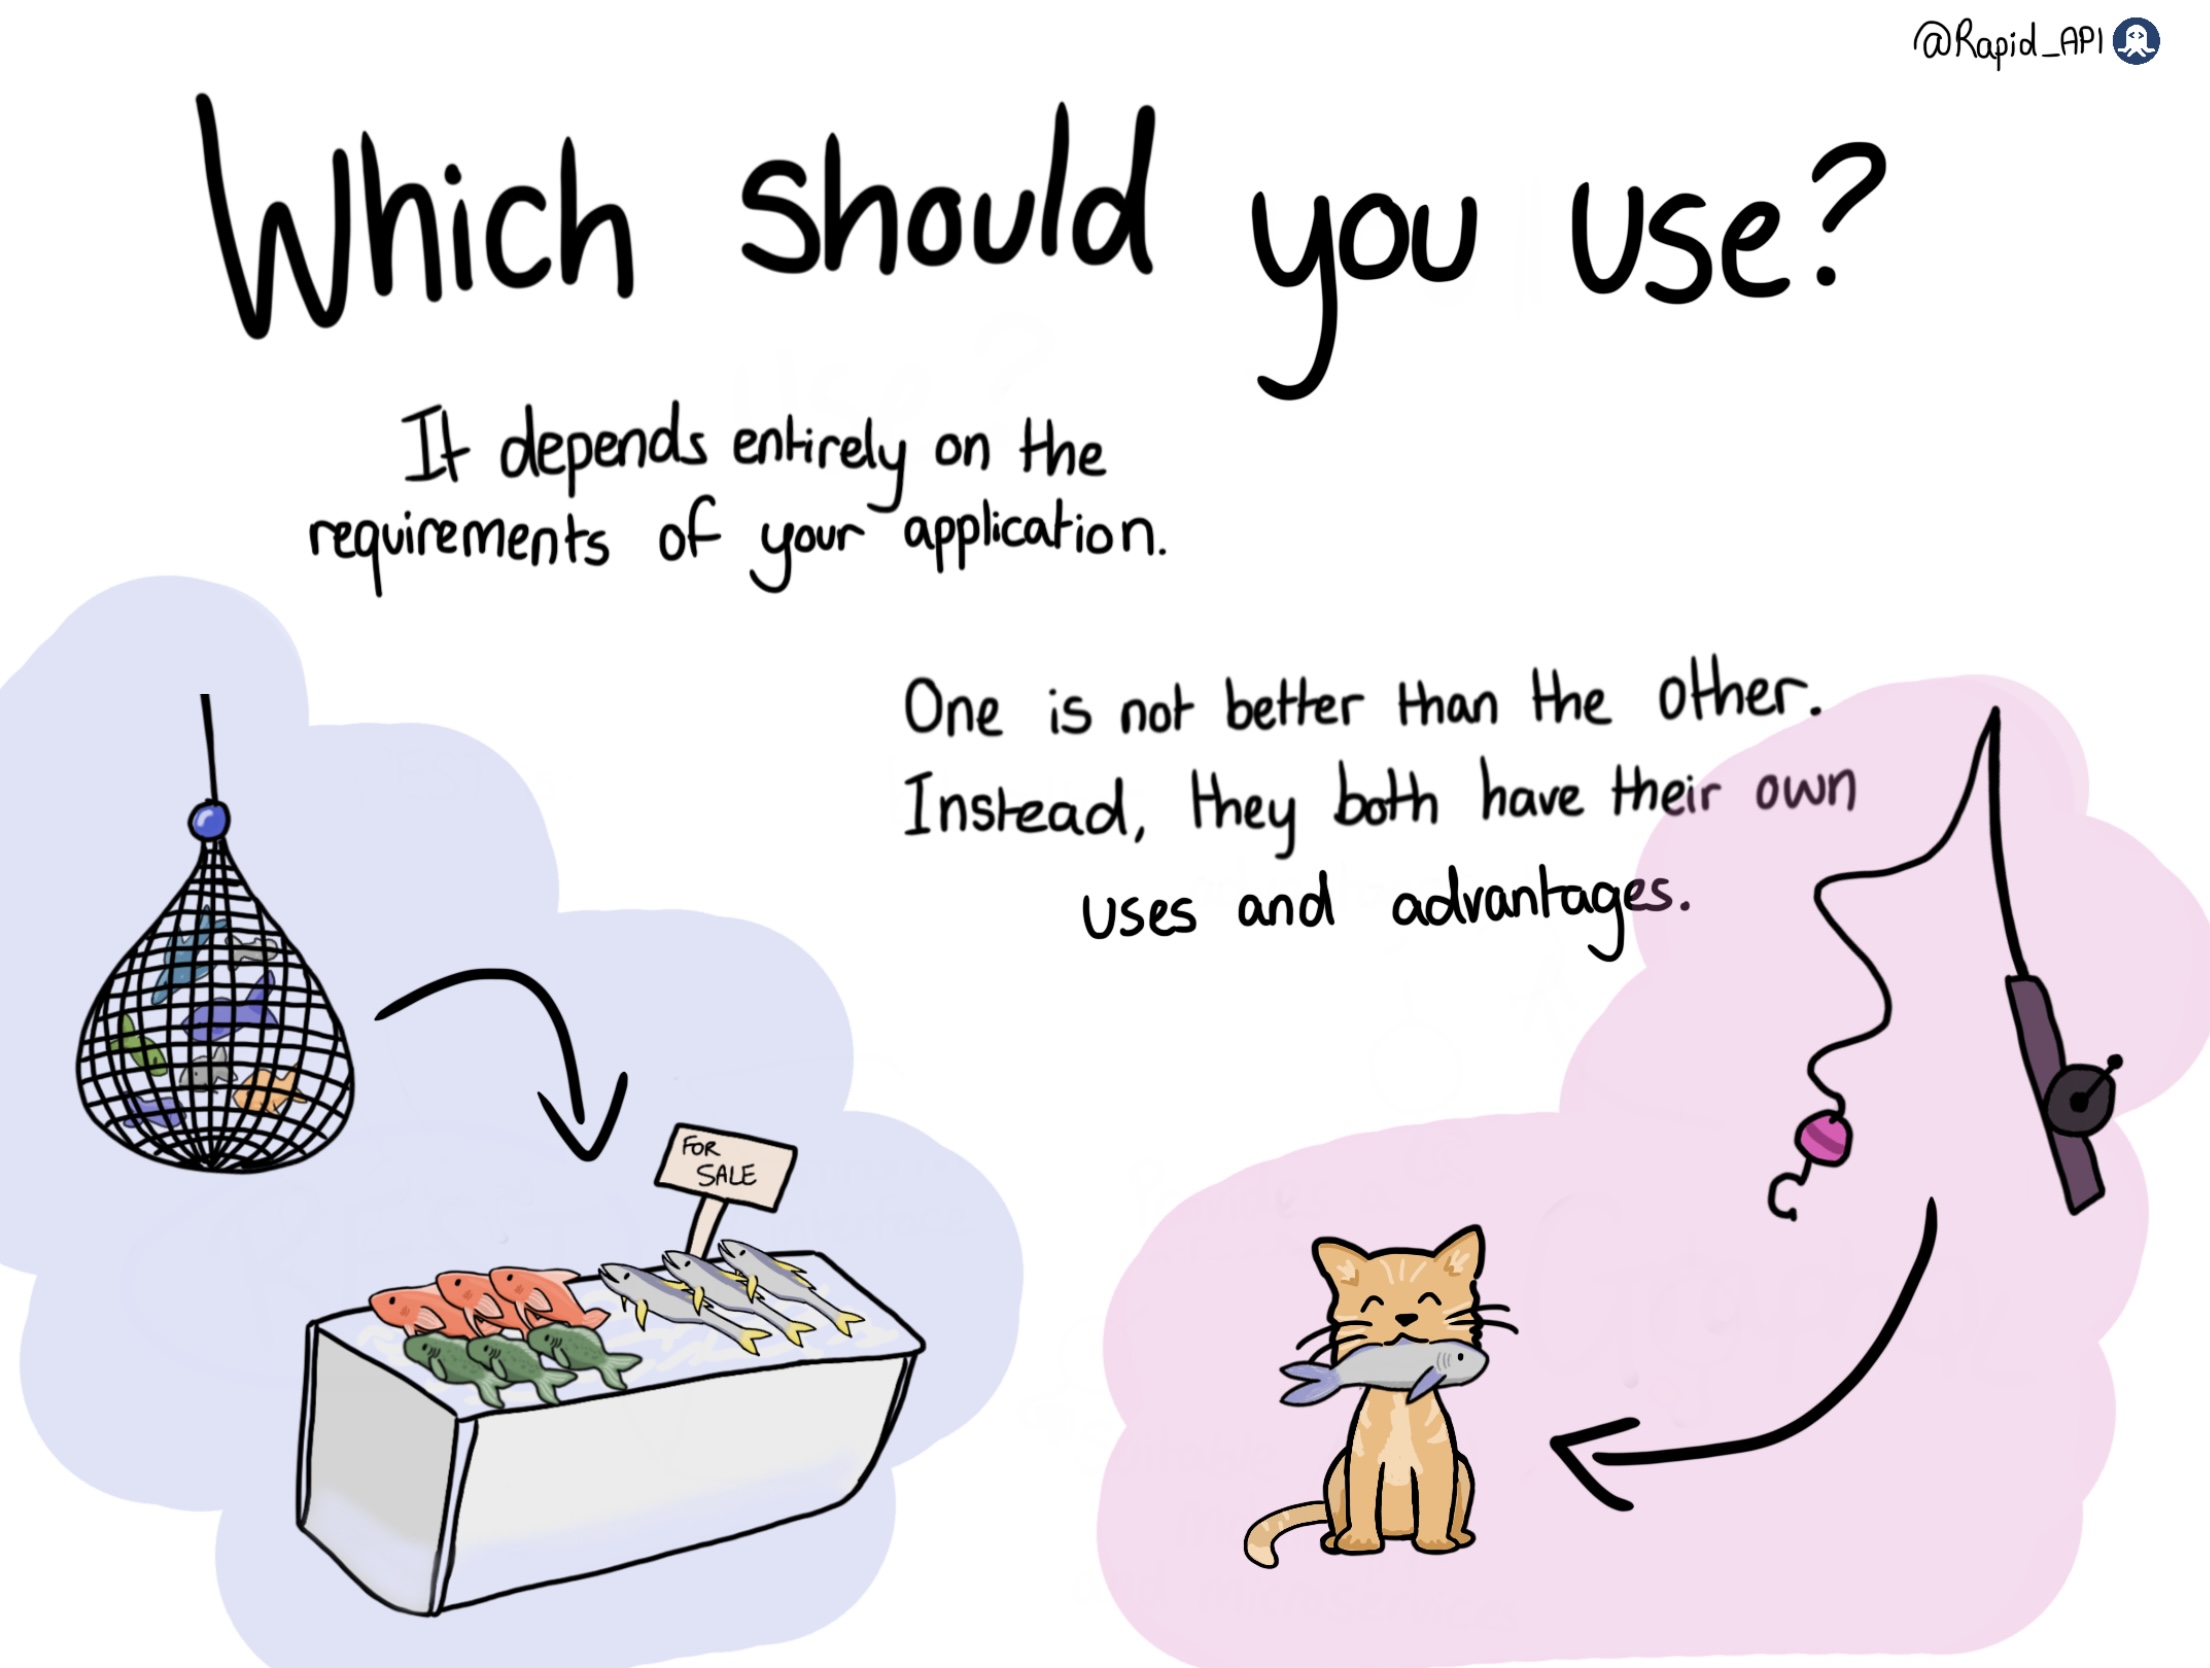 @Rapid_API
Which should you use?
It depends entirely on the
requirements of your application.
One is not better than the other.
Instead, they both have their own
uses and advantages.
FOR
SALE